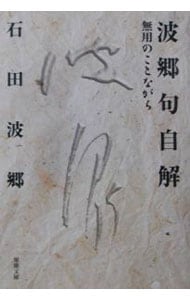 波郷句自解
無用のことながら
石田波郷
波郷